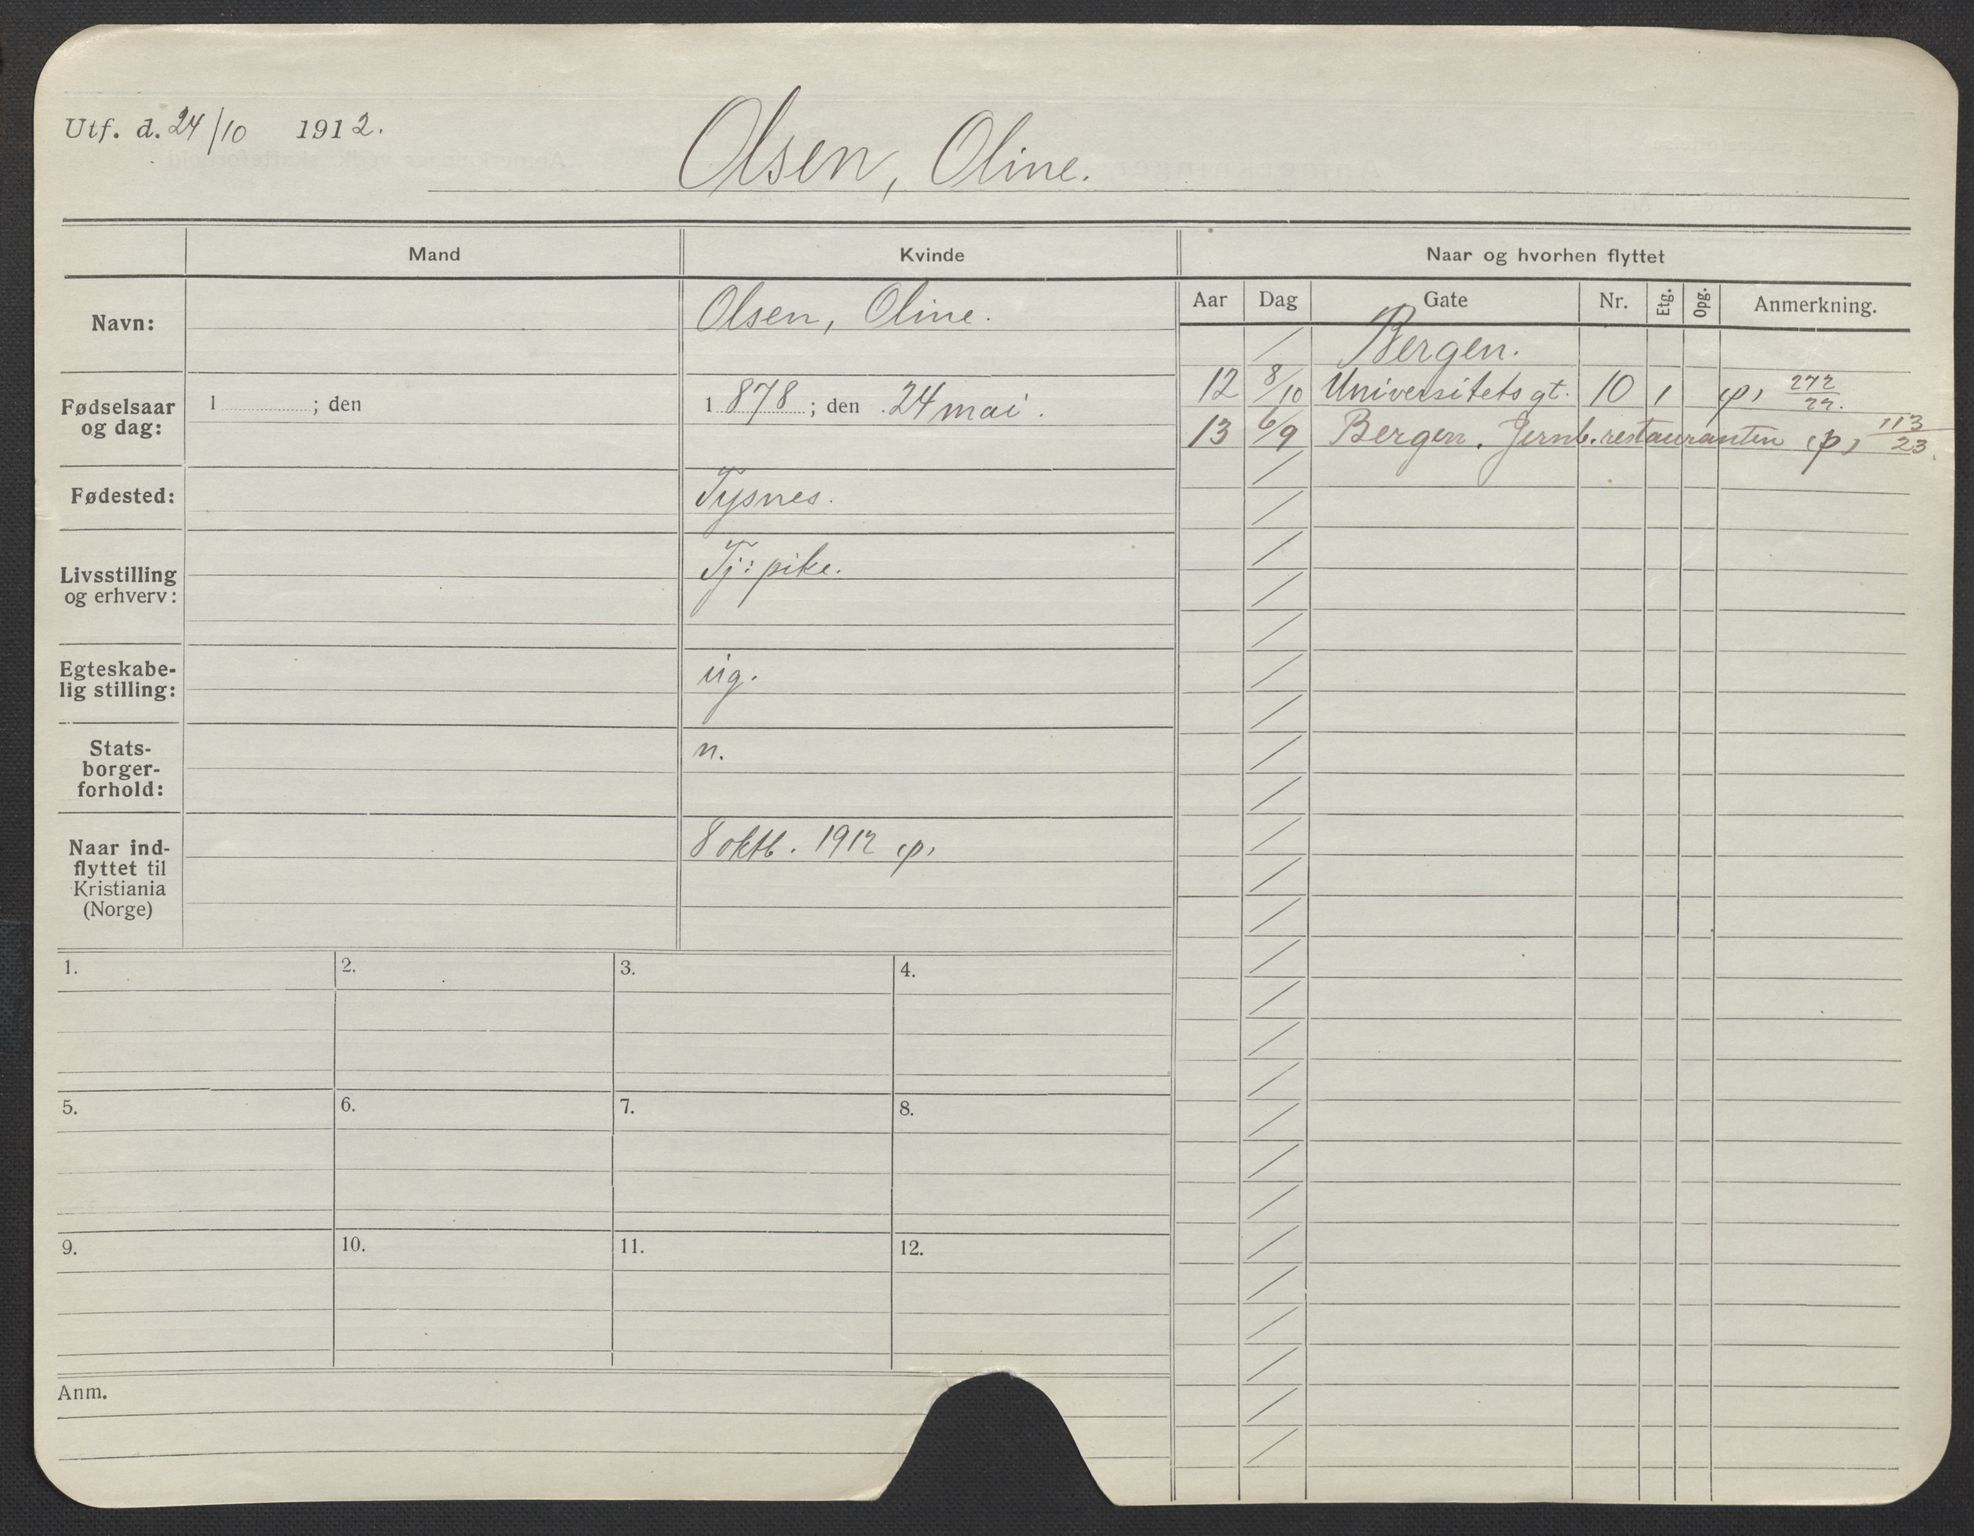 Utf. d. 24/10 1912.
Olsen, Oline.
Mand
Kvinde
Naar og hvorhen flyttet
Aar Dag Gate Nr. Etg. Opg. Anmerkning.
Navn:
Olsen, Oline.
Fødselsaar
og dag:
1 ; den
1 878 ; den 24 mai.
Fødested:
Tysnes.
Livsstilling
og erhverv:
Tj: pike.
Egteskabe-
lig stilling:
ug.
Stats-
borger-
forhold:
n.
Naar ind-
flyttet til
Kristiania
(Norge)
8 oktb. 1912 p,
Bergen.
12 8/10 Universitets gt. 10 1 p, 272/22.
13 6/9 Bergen. Jernb. restauranten p, 113/23.
1. 2. 3. 4.
5. 6. 7. 8.
9. 10. 11. 12.
Anm.